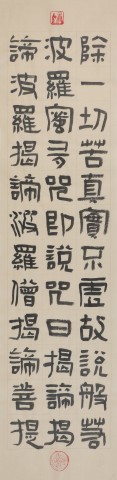 除一切苦真實不虛故說般若
波羅蜜多咒即說咒曰揭諦揭
諦波羅揭諦波羅僧揭諦菩提